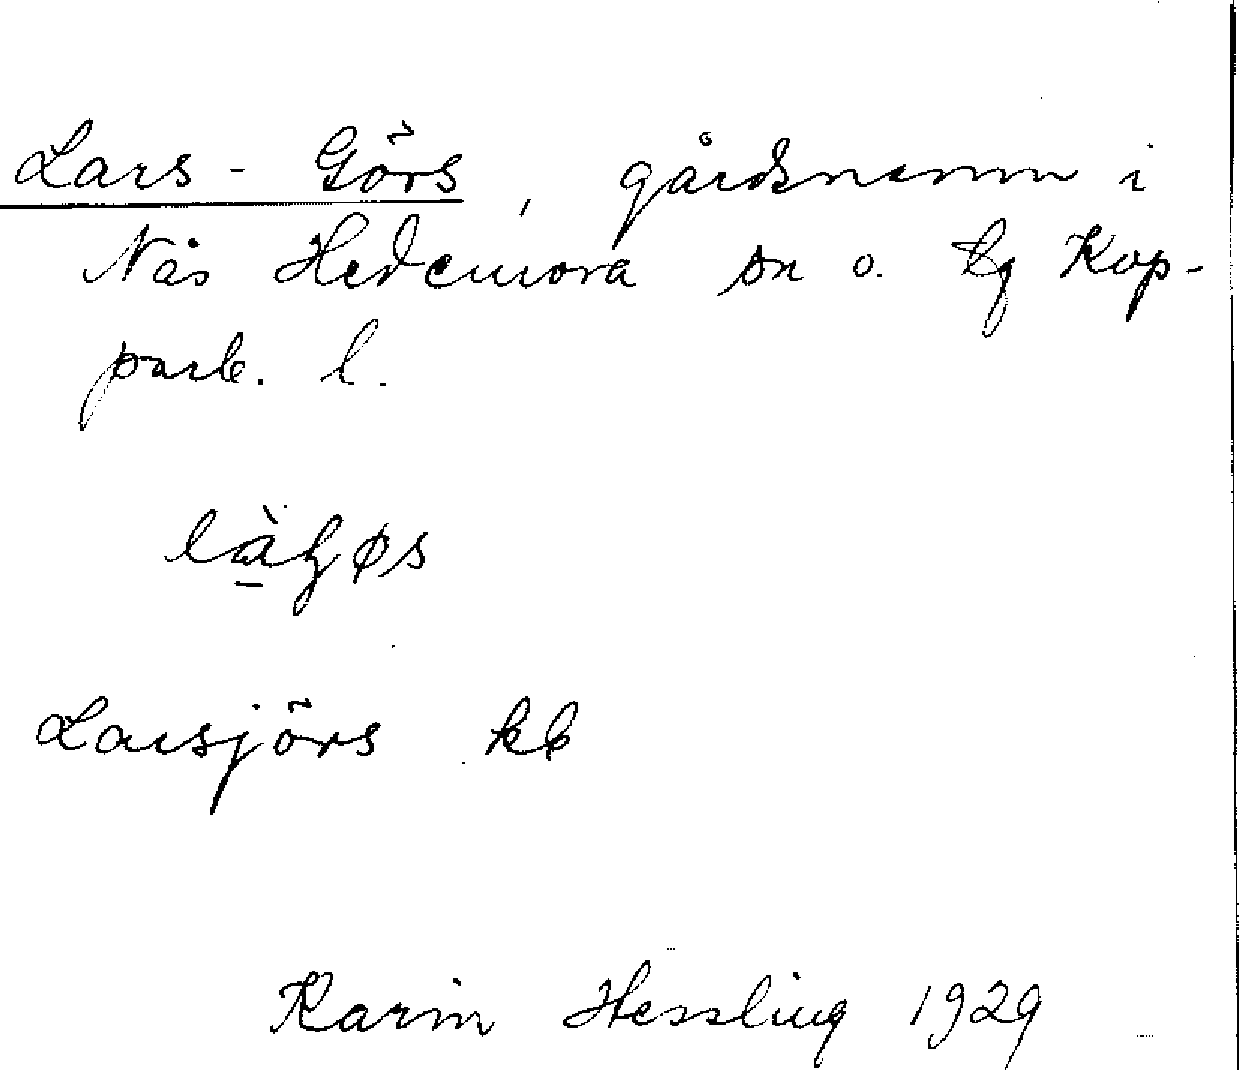 Lars - Görs, gårdsnamn i
Näs Hedemora sn o. tg Kop-
parb. l.
Larsjörs kb
Karin Hessling 1929